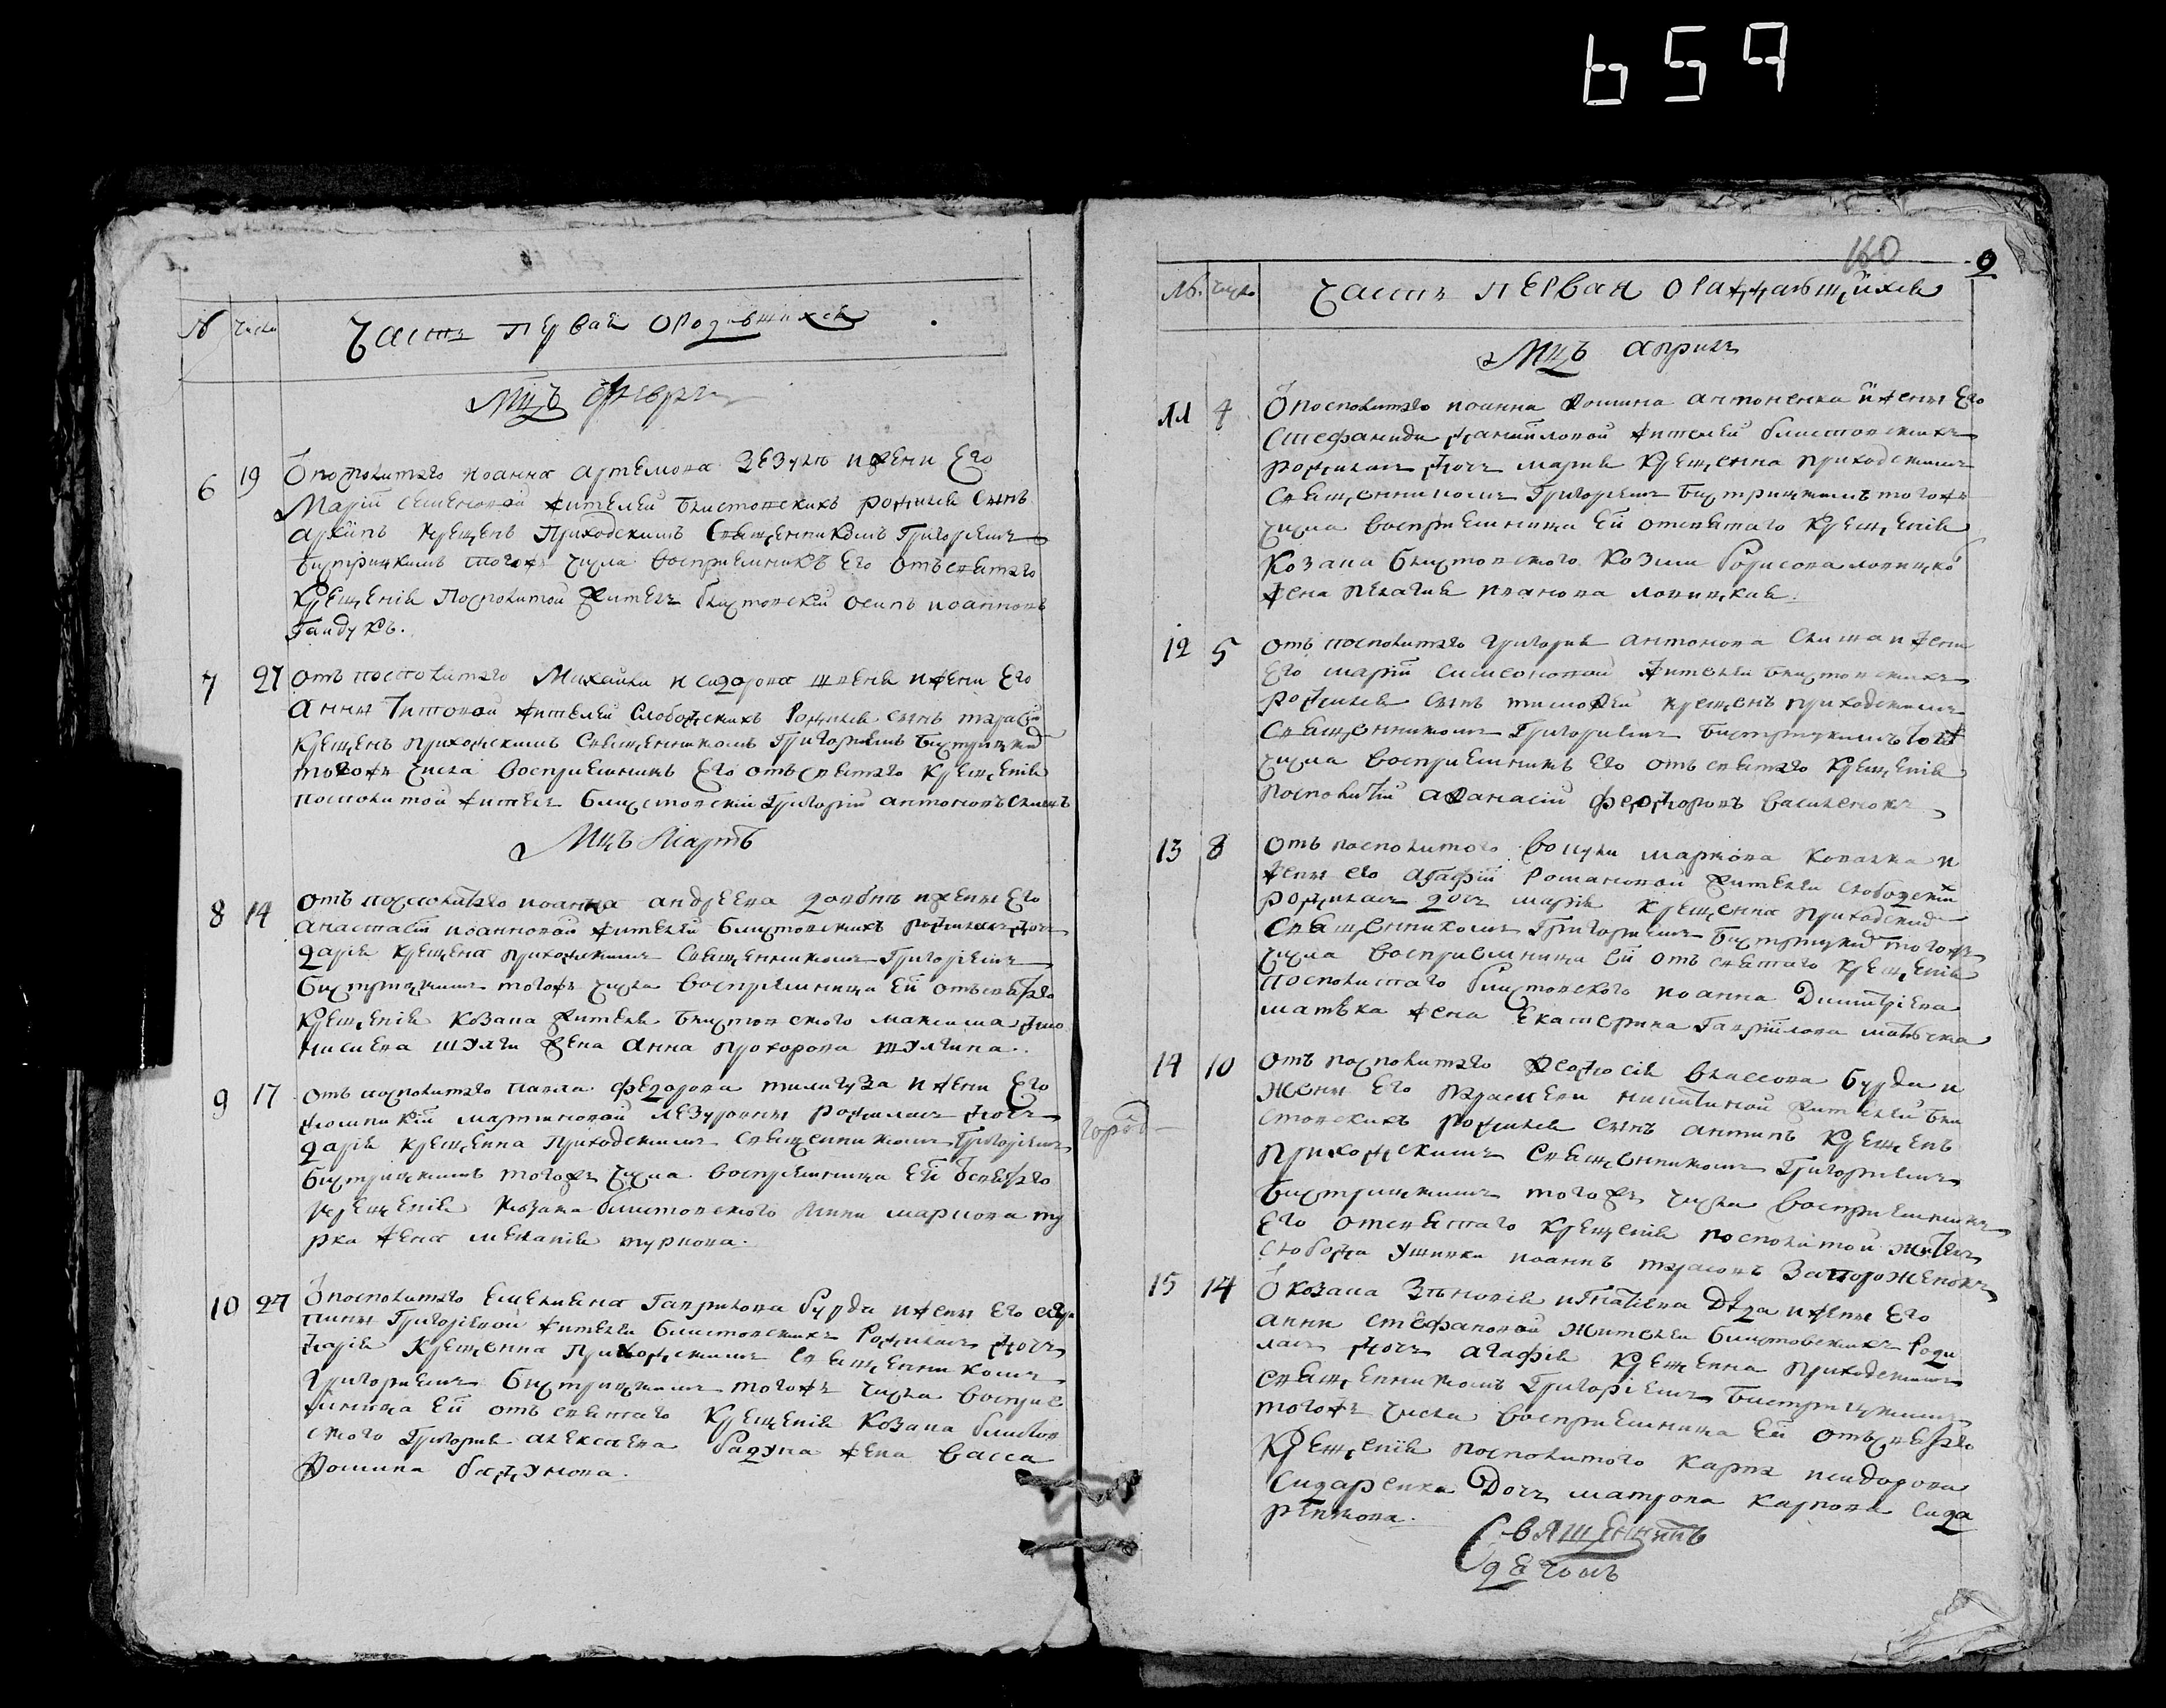 659
№ Числа Часть первая ородившихся
Мцъ Февраль
6 19 Ѿ посполитаго иоанна артемова Зезули и жени Его
Марiи Семеновой жителей Блистовскихъ родился Сынъ
архипъ крещенъ Приходскимъ Священникомъ Григорiемъ
Бистрицкимъ тогожъ числа восприемникъ Его отъ святаго
Крещенiя Посполитой житель блистовскiй осипъ иоанновъ
Гайдукъ.
7 27 отъ посполитаго Михайла исидорова швеця и жени Его
Анны Титовой жителей Слободскихъ Родился сынъ тарасiй
Крещенъ приходскимъ Священникомъ Григорiемъ Бистрицкимъ
тогожъ числа восприемникъ Его отъ святаго Крещенiя
посполитой житель Блистовскiй Григорiй антоновъ
Мцъ Мартъ
8 14 отъ посполитаго иоанна андреева и жены Его
анастасiи иоанновой жителей Блистовскихъ родилась дочъ
дарiя крещена приходскимъ Священникомъ Григорiемъ
Бистрицкимъ тогожъ числа восприемница Ей отъ святаго
Крещенiя козака жителя Блистовского максима дио
нисиева шулги жена анна прохорова шулгина.
9 17 отъ посполитаго павла федорова тилигуза и жени Его
домникiи мартиновой родилась дочъ
дарiя крещенна приходскимъ священникомъ Григорiемъ
Бистрицкимъ тогожъ числа восприемница Ей ѿ святаго
крещенiя козака блистовского маркова ту
рка жена меланiя туркова.
10 27 Ѿ посполитаго Емелиана Гаврилова бурди и жены Его
Григорiевой жителей Блистовскихъ Родилась дочъ
дарiя Крещенна Приходскимъ священникомъ
Григорiемъ Бистрицкимъ тогожъ числа восприе
мница Ей отъ святаго Крещенiя козака блистов
ского Григорiя алексѣева бадуна жена васса
Фомина бадунова.
город
160 9
№. Число Часть первая ораждавшiихся
Мцъ априль
11 4 Ѿ посполитаго иоанна Фомина антоненка и жены Его
Стефаниди данiиловой жителей блистовскихъ
родилась дочъ марiя крещенна приходскимъ
Священникомъ Григорiемъ Бистрицкимъ тогожъ
числа восприемница Ей отсвятаго крещенiя
козака блистовского козми борисова
жена пелагия иванова
12 5 отъ посполитаго григорiя антонова и жени
Его марiи симеоновой жителей блистовскихъ
Родился сынъ тимофей крещенъ приходскимъ
Священникомъ Григорiемъ Бистрицкимъ тогожъ
числа восприемникъ Его отъ святаго крещенiя
посполитiй афанасiй феодоровъ василенокъ
13 8 отъ посполитого маркова и
жены его Агафiи Романовой жителей слободскихъ
родилась дочъ марiя крещенна приходскимъ
Священникомъ Григорiемъ Бистрицкимъ тогожъ
числа восприемница Ей отъ святаго крещенiя
посполитаго блистовского иоанна Димитрiева
матѣка жена Екатерина Гаврiилова
14 10 отъ посполитаго Феодосiя власова Бурди и
жены Его параскеви никитиной жителей бли
стовскихъ родился сынъ антипъ крещенъ
приходскимъ священникомъ Григориемъ
Бистрицкимъ тогожъ числа восприемникъ
Его отсвятаго крещенiя посполитой житель
слободка ушинки иоаннъ тарасовъ Запороженокъ
15 14 Ѿ козака Зѣновiя игнатiева Дѣда и жены Его
анни стефановой жителей Блистовскихъ Роди
лась дочъ агафiя крещенна приходскимъ
священникомъ Григорiемъ Бистрицкимъ
тогожъ числа восприемница Ей отъ святаго
крещенiя посполитого карпа исидорова
Сидаренка Дочъ матрона карпова сида
ренкова.
Священникъ